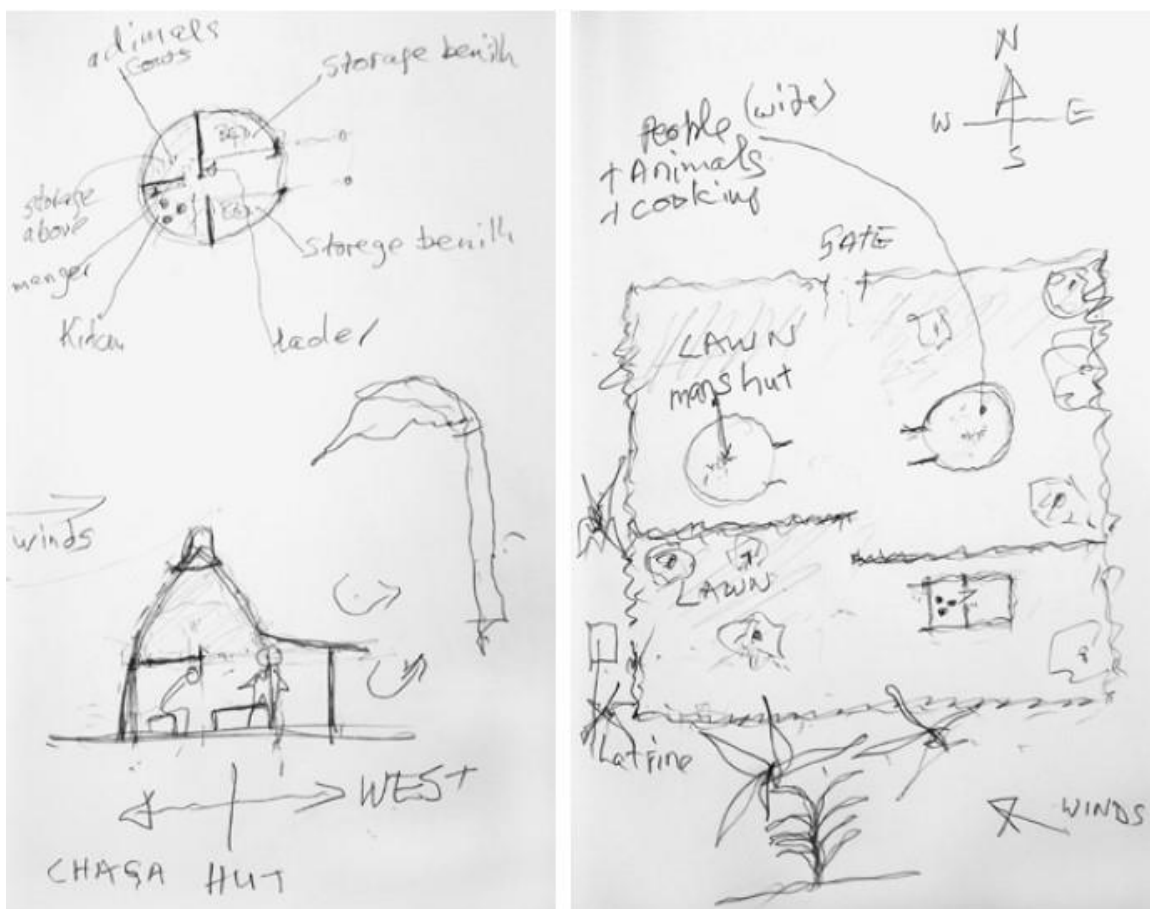 adimals
cows
storage benith
BED
storage
above
menger
Kitcn
BED
Storege benith
lader
winds
WEST
CHAGA HUT
N
W E
S
People (wife)
+ Animals
+ cooking
GATE
LAWN
mans hut
LAWN
Latrine
WINDS